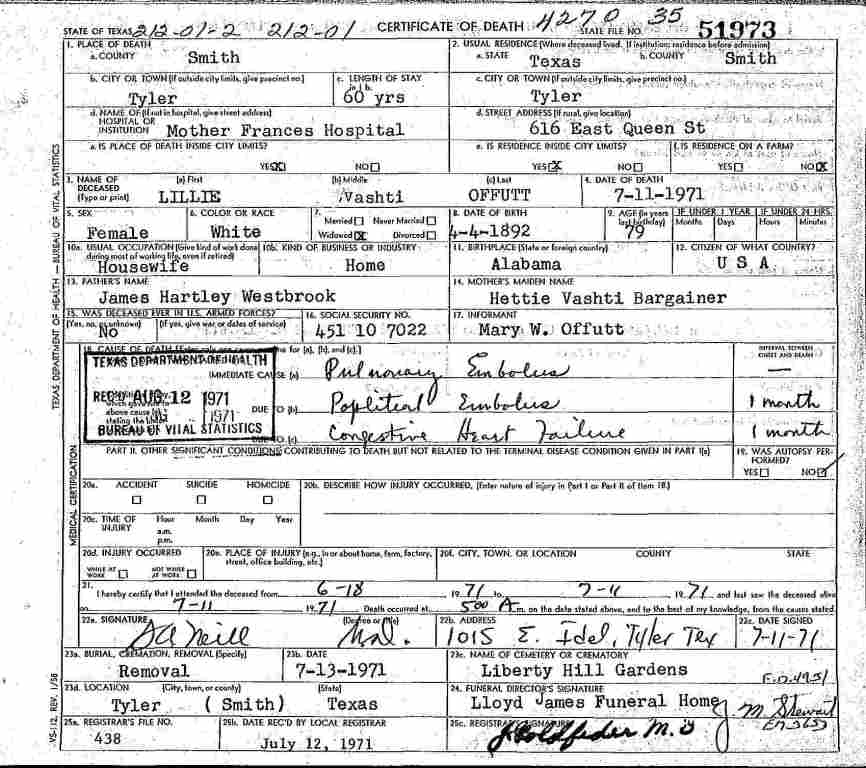 STATE OF TEXAS 212-01-2 212-01 CERTIFICATE OF DEATH 4270 STATE FILE NO. 35 51973
1. PLACE OF DEATH
a. COUNTY Smith
2. USUAL RESIDENCE (Where deceased lived. If institution: residence before admission)
a. STATE Texas b. COUNTY Smith
b. CITY OR TOWN (If outside city limits, give precinct no.) Tyler
c. LENGTH OF STAY in 1 b. 60 yrs
c. CITY OR TOWN (If outside city limits, give precinct no.) Tyler
d. NAME OF (If not in hospital, give street address) HOSPITAL OR INSTITUTION Mother Frances Hospital
d. STREET ADDRESS (If rural, give location) 616 East Queen St
e. IS PLACE OF DEATH INSIDE CITY LIMITS?
YES X NO
e. IS RESIDENCE INSIDE CITY LIMITS?
YES X NO
f. IS RESIDENCE ON A FARM?
YES NO X
3. NAME OF DECEASED (Type or print) (a) First LILLIE (b) Middle Vashti (c) Last OFFUTT
4. DATE OF DEATH 7-11-1971
5. SEX Female
6. COLOR OR RACE White
7. Married Never Married
Widowed X Divorced
8. DATE OF BIRTH 4-4-1892
9. AGE (In years last birthday) 79
IF UNDER 1 YEAR Months Days
IF UNDER 24 HRS. Hours Minutes
10a. USUAL OCCUPATION (Give kind of work done during most of working life, even if retired) Housewife
10b. KIND OF BUSINESS OR INDUSTRY Home
11. BIRTHPLACE (State or foreign country) Alabama
12. CITIZEN OF WHAT COUNTRY? U S A
13. FATHER'S NAME James Hartley Westbrook
14. MOTHER'S MAIDEN NAME Hettie Vashti Bargainer
15. WAS DECEASED EVER IN U.S. ARMED FORCES?
(Yes, no, or unknown) No (If yes, give war or dates of service)
16. SOCIAL SECURITY NO. 451 10 7022
17. INFORMANT Mary W. Offutt
18. CAUSE OF DEATH
INTERVAL BETWEEN ONSET AND DEATH
TEXAS DEPARTMENT OF HEALTH
REC'D AUG 12 1971
1971
BUREAU OF VITAL STATISTICS
IMMEDIATE CAUSE (a) Pulmonary Embolus —
DUE TO (b) Popliteal Embolus 1 month
DUE TO (c) Congestive Heart Failure 1 month
PART II. OTHER SIGNIFICANT CONDITIONS CONTRIBUTING TO DEATH BUT NOT RELATED TO THE TERMINAL DISEASE CONDITION GIVEN IN PART I(a)
19. WAS AUTOPSY PERFORMED?
YES NO
20a. ACCIDENT SUICIDE HOMICIDE
20b. DESCRIBE HOW INJURY OCCURRED. (Enter nature of injury in Part I or Part II of Item 18.)
20c. TIME OF INJURY Hour Month Day Year
a.m.
p.m.
20d. INJURY OCCURRED
WHILE AT WORK NOT WHILE AT WORK
20e. PLACE OF INJURY (e.g., in or about home, farm, factory, street, office building, etc.)
20f. CITY, TOWN, OR LOCATION COUNTY STATE
21. I hereby certify that I attended the deceased from 6-18 1971 to 7-11 1971 and last saw the deceased alive
on 7-11 1971 Death occurred at 5:00 A.m. on the date stated above, and to the best of my knowledge, from the causes stated.
22a. SIGNATURE (Degree or title) M.D.
22b. ADDRESS 1015 E. Idel, Tyler Tex
22c. DATE SIGNED 7-11-71
23a. BURIAL, CREMATION, REMOVAL (Specify) Removal
23b. DATE 7-13-1971
23c. NAME OF CEMETERY OR CREMATORY Liberty Hill Gardens
23d. LOCATION (City, town, or county) (State) Tyler (Smith) Texas
24. FUNERAL DIRECTOR'S SIGNATURE Lloyd James Funeral Home J M Stewart
25a. REGISTRAR'S FILE NO. 438
25b. DATE REC'D BY LOCAL REGISTRAR July 12, 1971
25c. REGISTRAR'S SIGNATURE J Goldfeder M.D
TEXAS DEPARTMENT OF HEALTH — BUREAU OF VITAL STATISTICS
MEDICAL CERTIFICATION
VS-112, REV. 1/56